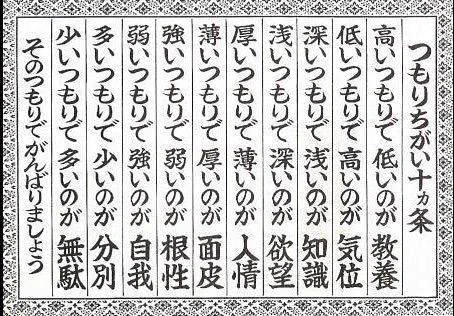 つもりちがい十ヵ条
高いつもりで 低いのが 教養
低いつもりで 高いのが 気位
深いつもりで 浅いのが 知識
浅いつもりで 深いのが 欲望
厚いつもりで 薄いのが 人情
薄いつもりで 厚いのが 面皮
強いつもりで 弱いのが 根性
弱いつもりで 強いのが 自我
多いつもりで 少いのが 分別
少いつもりで 多いのが 無駄
そのつもりでがんばりましょう